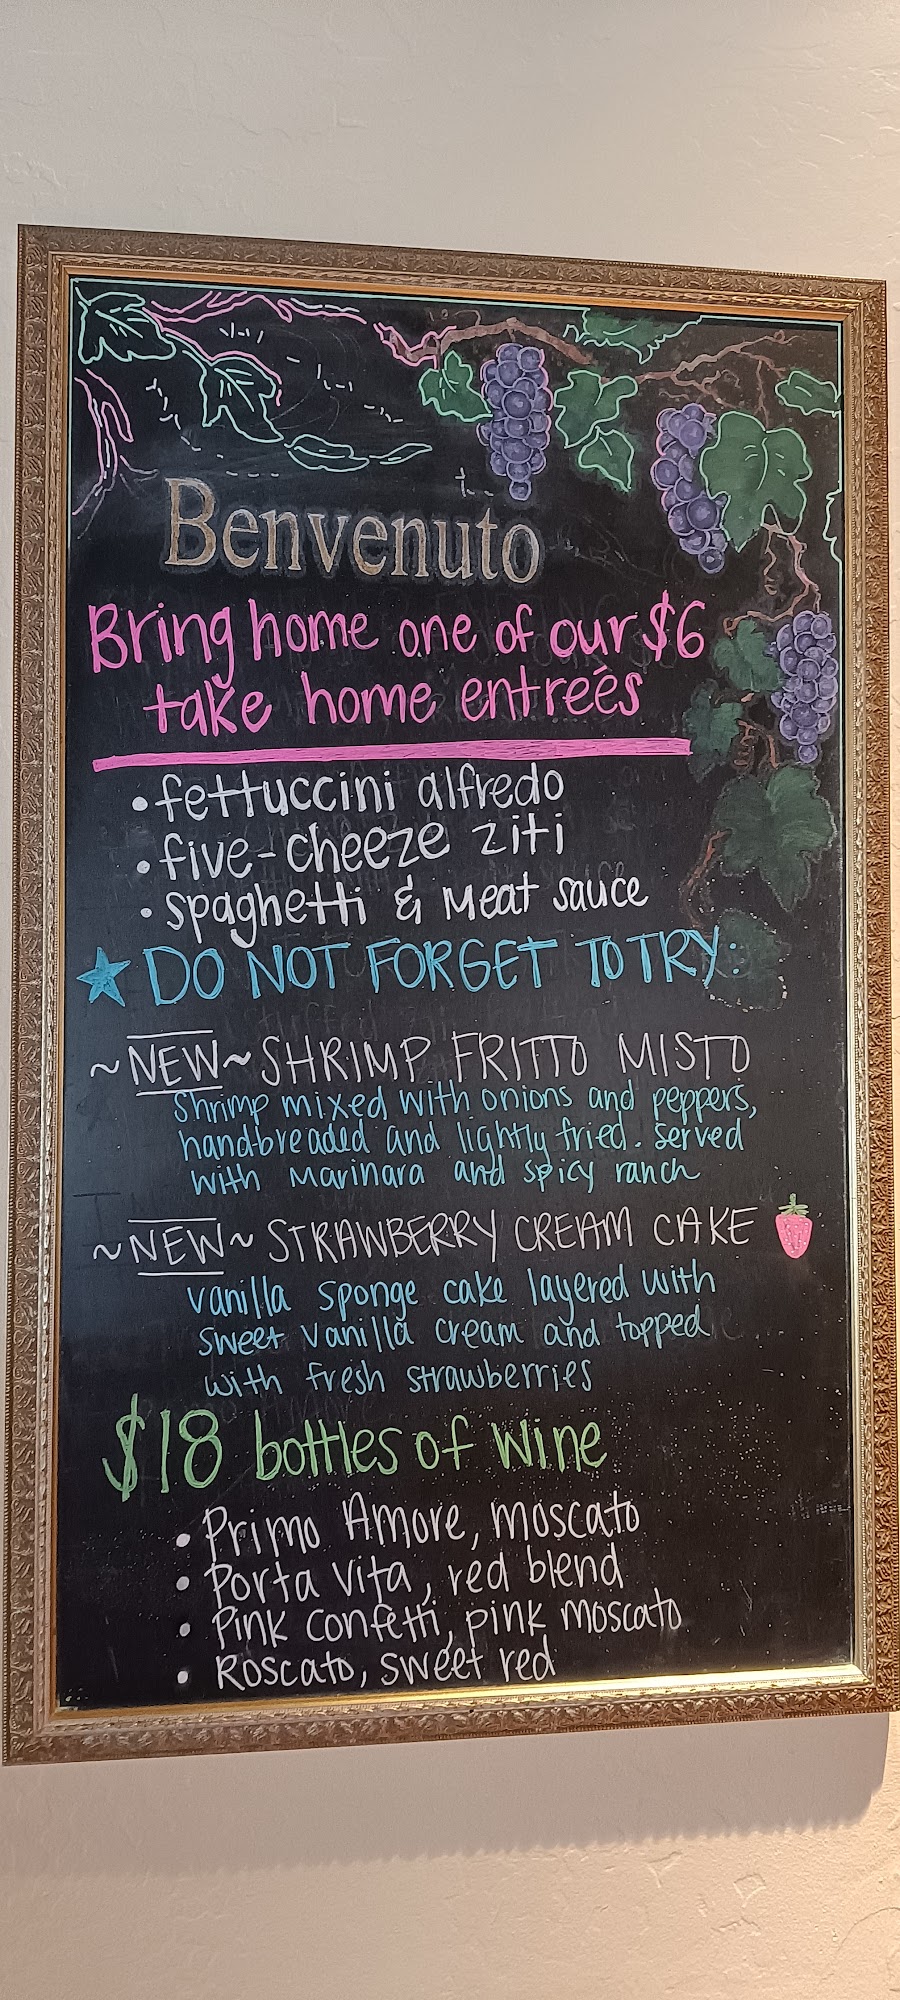 Benvenuto
Bring home one of our $6
take home entreés
• fettuccini alfredo
• five-cheeze ziti
• spaghetti & Meat sauce
DO NOT FORGET TO TRY:
~NEW~ SHRIMP FRITTO MISTO
Shrimp mixed with onions and peppers,
handbreaded and lightly fried. Served
with Marinara and spicy ranch
~NEW~ STRAWBERRY CREAM CAKE
vanilla sponge cake layered with
sweet vanilla cream and topped
with fresh strawberries
$18 bottles of wine
• Primo Amore, moscato
• Porta Vita, red blend
• Pink Confetti, pink moscato
• Roscato, sweet red